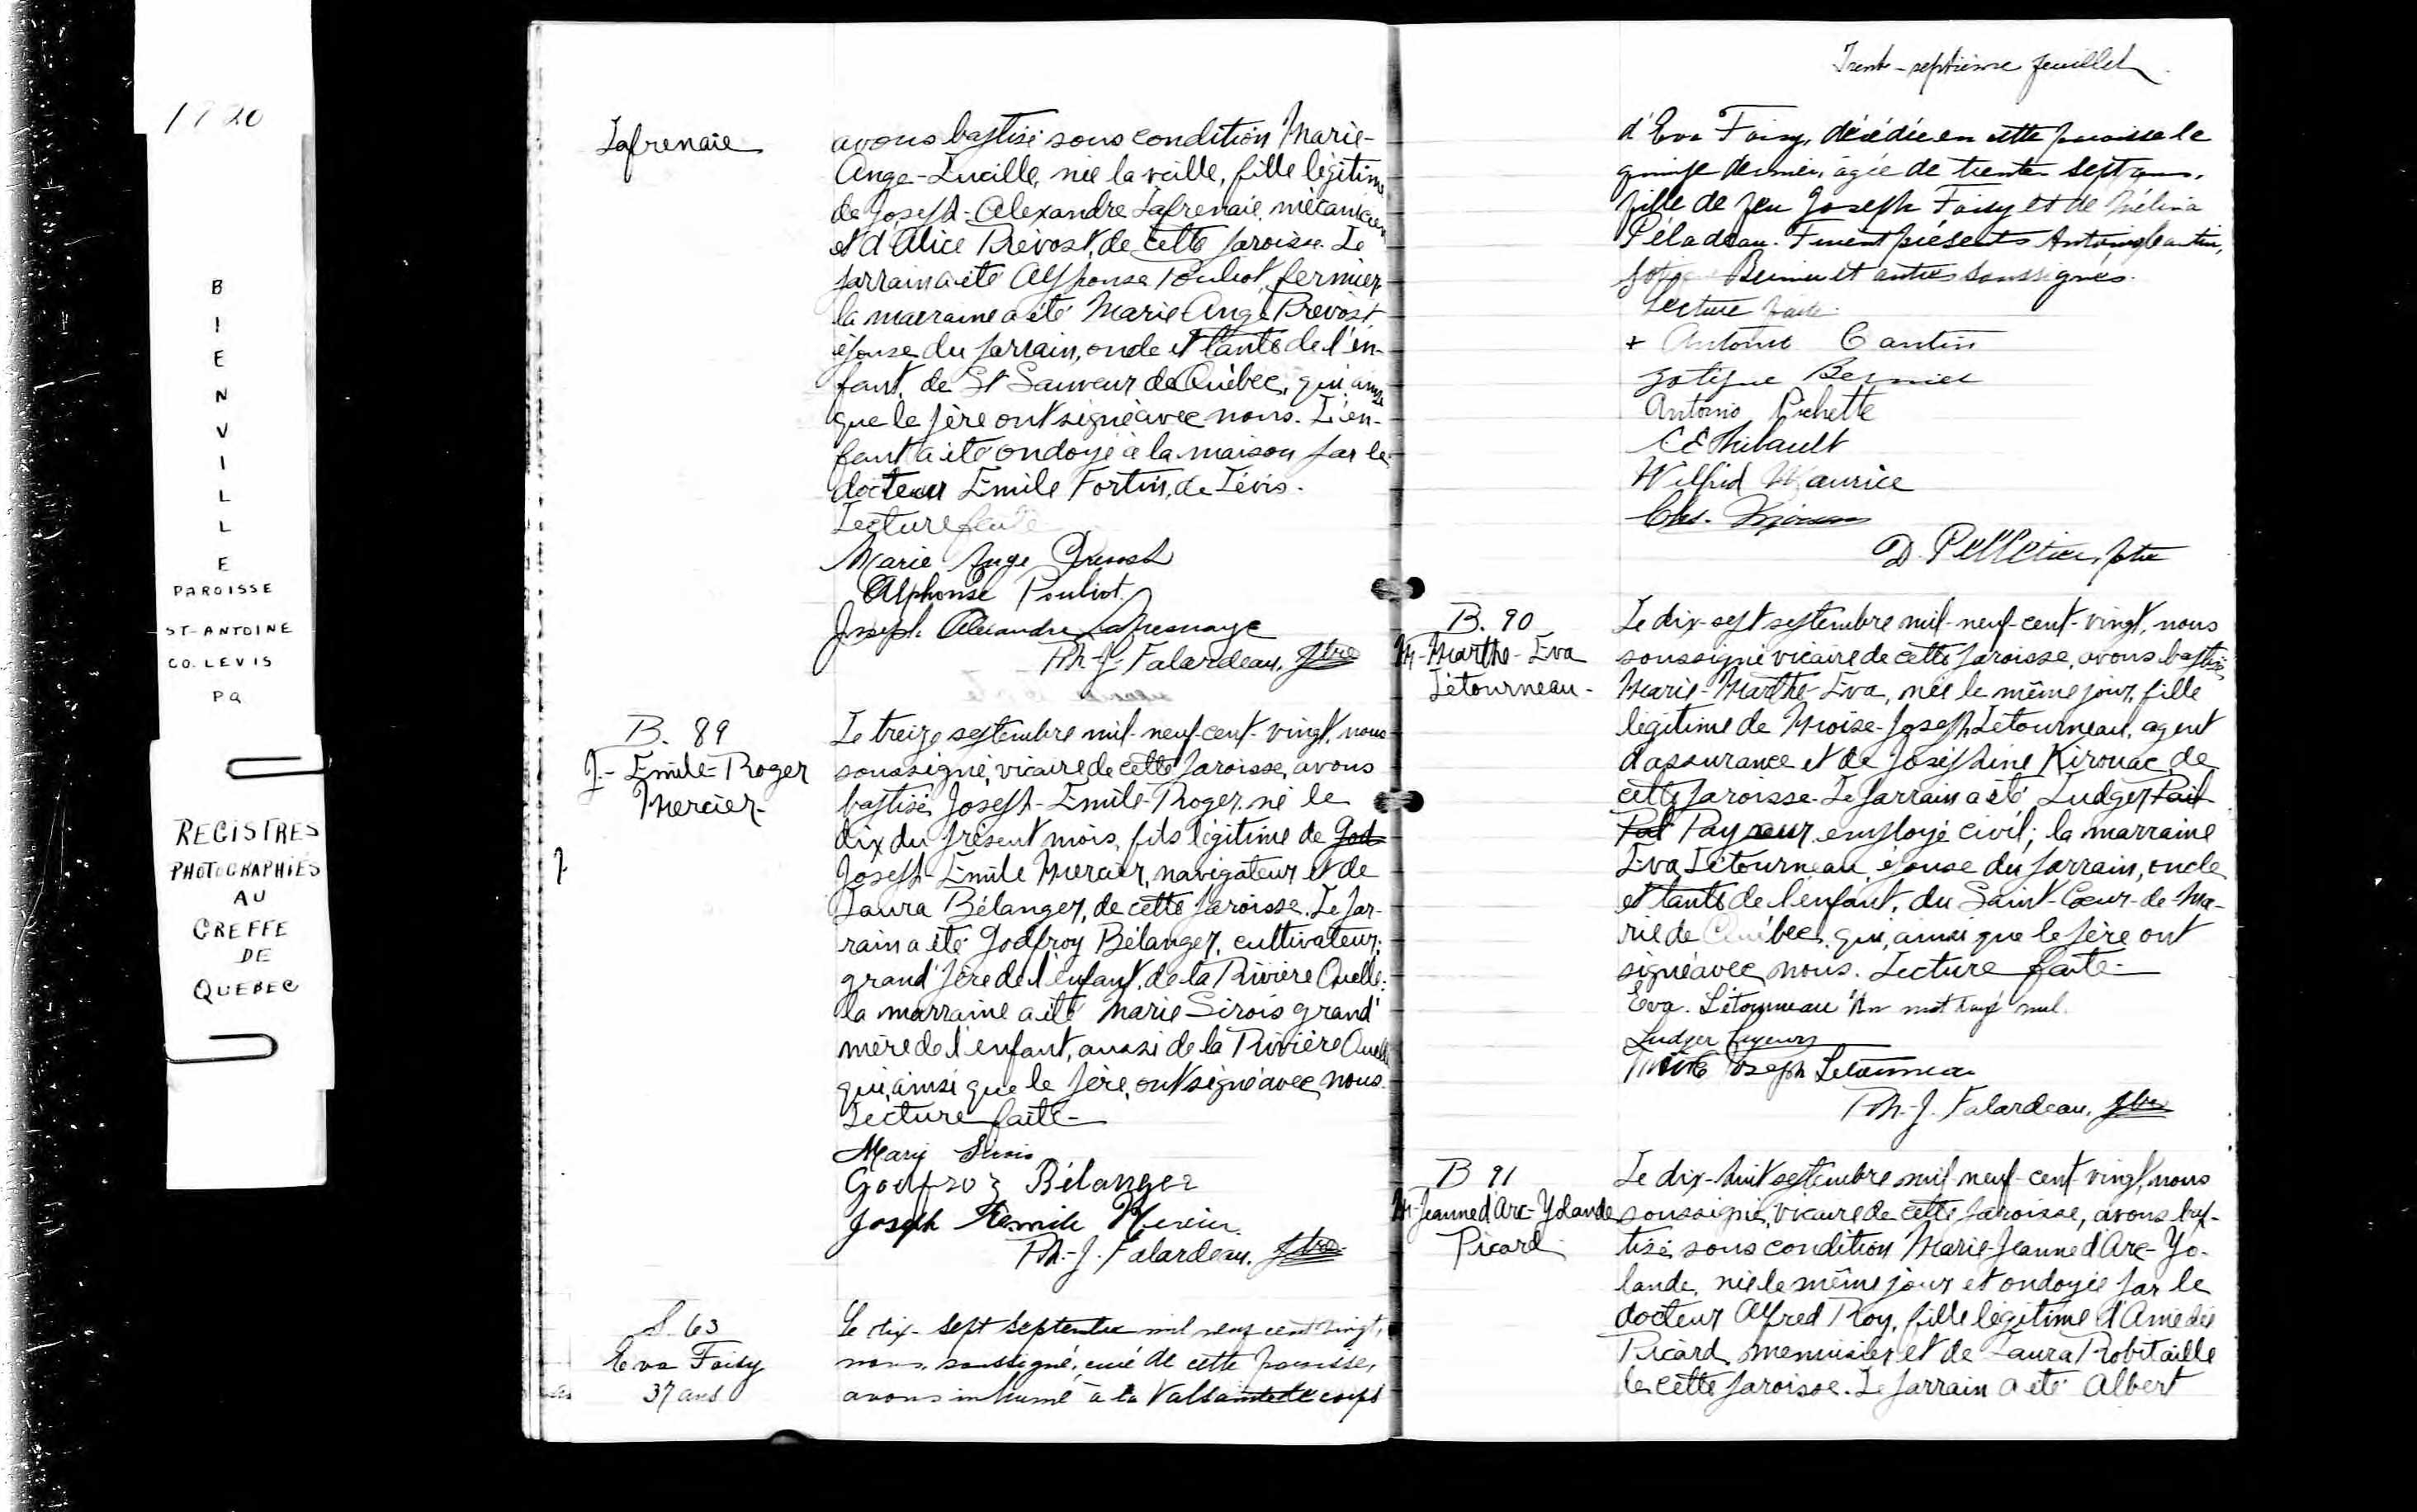 1920
B
I
E
N
V
I
L
L
E
PAROISSE
ST-ANTOINE
CO. LEVIS
PQ
REGISTRES
PHOTOGRAPHIÉS
AU
GREFFE
DE
QUEBEC
Lafrenaie
avons baptisé sous condition Marie-
Ange-Lucille, née la veille, fille légitime
de Joseph-Alexandre Lafrenaie, mécanicien
et d'Alice Prévost, de cette paroisse. Le
parrain a été Alphonse Pouliot, fermier,
la marraine a été Marie Ange Prévost,
épouse du parrain, oncle et tante de l'en-
fant, de St Sauveur de Québec, qui ainsi
que le père ont signé avec nous. L'en-
fant a été ondoyé à la maison par le
docteur Emile Fortin, de Lévis.
Lecture faite
Marie Ange Prevost
Alphonse Pouliot
Joseph Alexandre Lafresnaye
Ph-J. Falardeau, Ptre
B. 89
J.-Emile-Roger
Mercier-
Le treize septembre mil-neuf-cent-vingt, nous
soussigné, vicaire de cette paroisse, avons
baptisé Joseph-Emile-Roger, né le
dix du présent mois, fils légitime de God
Joseph-Emile Mercier, navigateur et de
Laura Bélanger, de cette paroisse. Le par-
rain a été Godfroy Bélanger, cultivateur,
grand'père de l'enfant, de la Rivière Ouelle;
la marraine a été Marie Sirois grand'
mère de l'enfant, aussi de la Rivière Ouelle
qui, ainsi que le père, ont signé avec nous.
Lecture faite-
Marie Sirois
Godfroy Bélanger
Joseph Emile Mercier
Ph.-J. Falardeau, Ptre
S. 63
Eva Foisy
37 ans
Le dix-sept septembre mil neuf cent vingt,
nous, soussigné, curé de cette paroisse,
avons inhumé à la Valsainte le corps
Trente-septième feuillet
d'Eva Foisy, décédée en cette paroisse le
quinze dernier, âgée de trente sept ans,
fille de feu Joseph Foisy et de Mélina
Péladeau. Furent présents Antoine Cantin,
Zotique Bernier et autres soussignés.
Lecture faite.
+ Antoine Cantin
Zotique Bernier
Antonio Pichette
C E Thibault
Wilfrid Maurice
Chs.
D. Pelletier, ptre
B. 90
M-Marthe-Eva
Létourneau-
Le dix-sept septembre mil-neuf-cent-vingt, nous
soussigné vicaire de cette paroisse, avons baptisé
Marie-Marthe-Eva, née le même jour, fille
légitime de Moïse-Joseph Létourneau, agent
d'assurance et de Joséphine Kirouac, de
cette paroisse. Le parrain a été Ludger Pait
Pat Payeur, employé civil; la marraine
Eva Létourneau, épouse du parrain, oncle
et tante de l'enfant, du Saint-Cœur-de-Ma-
rie de Québec, qui, ainsi que le père ont
signé avec nous. Lecture faite-
Eva. Létourneau Un mot rayé nul.
Ludger Payeur
Moïse Joseph Letourneau
Ph.-J. Falardeau, Ptre
B 91
M-Jeanne d'Arc-Yolande
Picard
Le dix-huit septembre mil-neuf-cent-vingt, nous
soussigné, vicaire de cette paroisse, avons bap-
tisé sous condition Marie-Jeanne d'Arc-Yo-
lande, née le même jour et ondoyée par le
docteur Alfred Roy, fille légitime d'Amédée
Picard, menuisier et de Laura Robitaille
de cette paroisse. Le parrain a été Albert